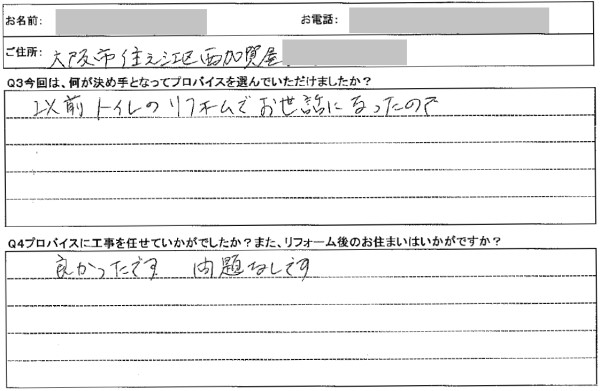 お名前: お電話:
ご住所: 大阪市住之江区西加賀屋
Q3今回は、何が決め手となってプロバイスを選んでいただけましたか?
以前トイレのリフォームでお世話になったので
Q4プロバイスに工事を任せていかがでしたか?また、リフォーム後のお住まいはいかがですか?
良かったです 問題なしです